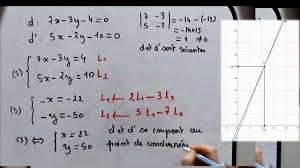 d: 7x-3y-4=0
d': 5x-2y-10=0
|7 -3| = -14-(-15)
|5 -2| = -14+15
= 1 ≠0
d et d' sont sécantes
(S) { 7x-3y=4 L₁
5x-2y=10 L₂
(S) { -x=-22 L₁ ← 2L₁-3L₂
-y=-50 L₂ ← 5L₁-7L₂
(S) ⇔ { x=22
y=50
d et d' se coupent au
point de coordonnées